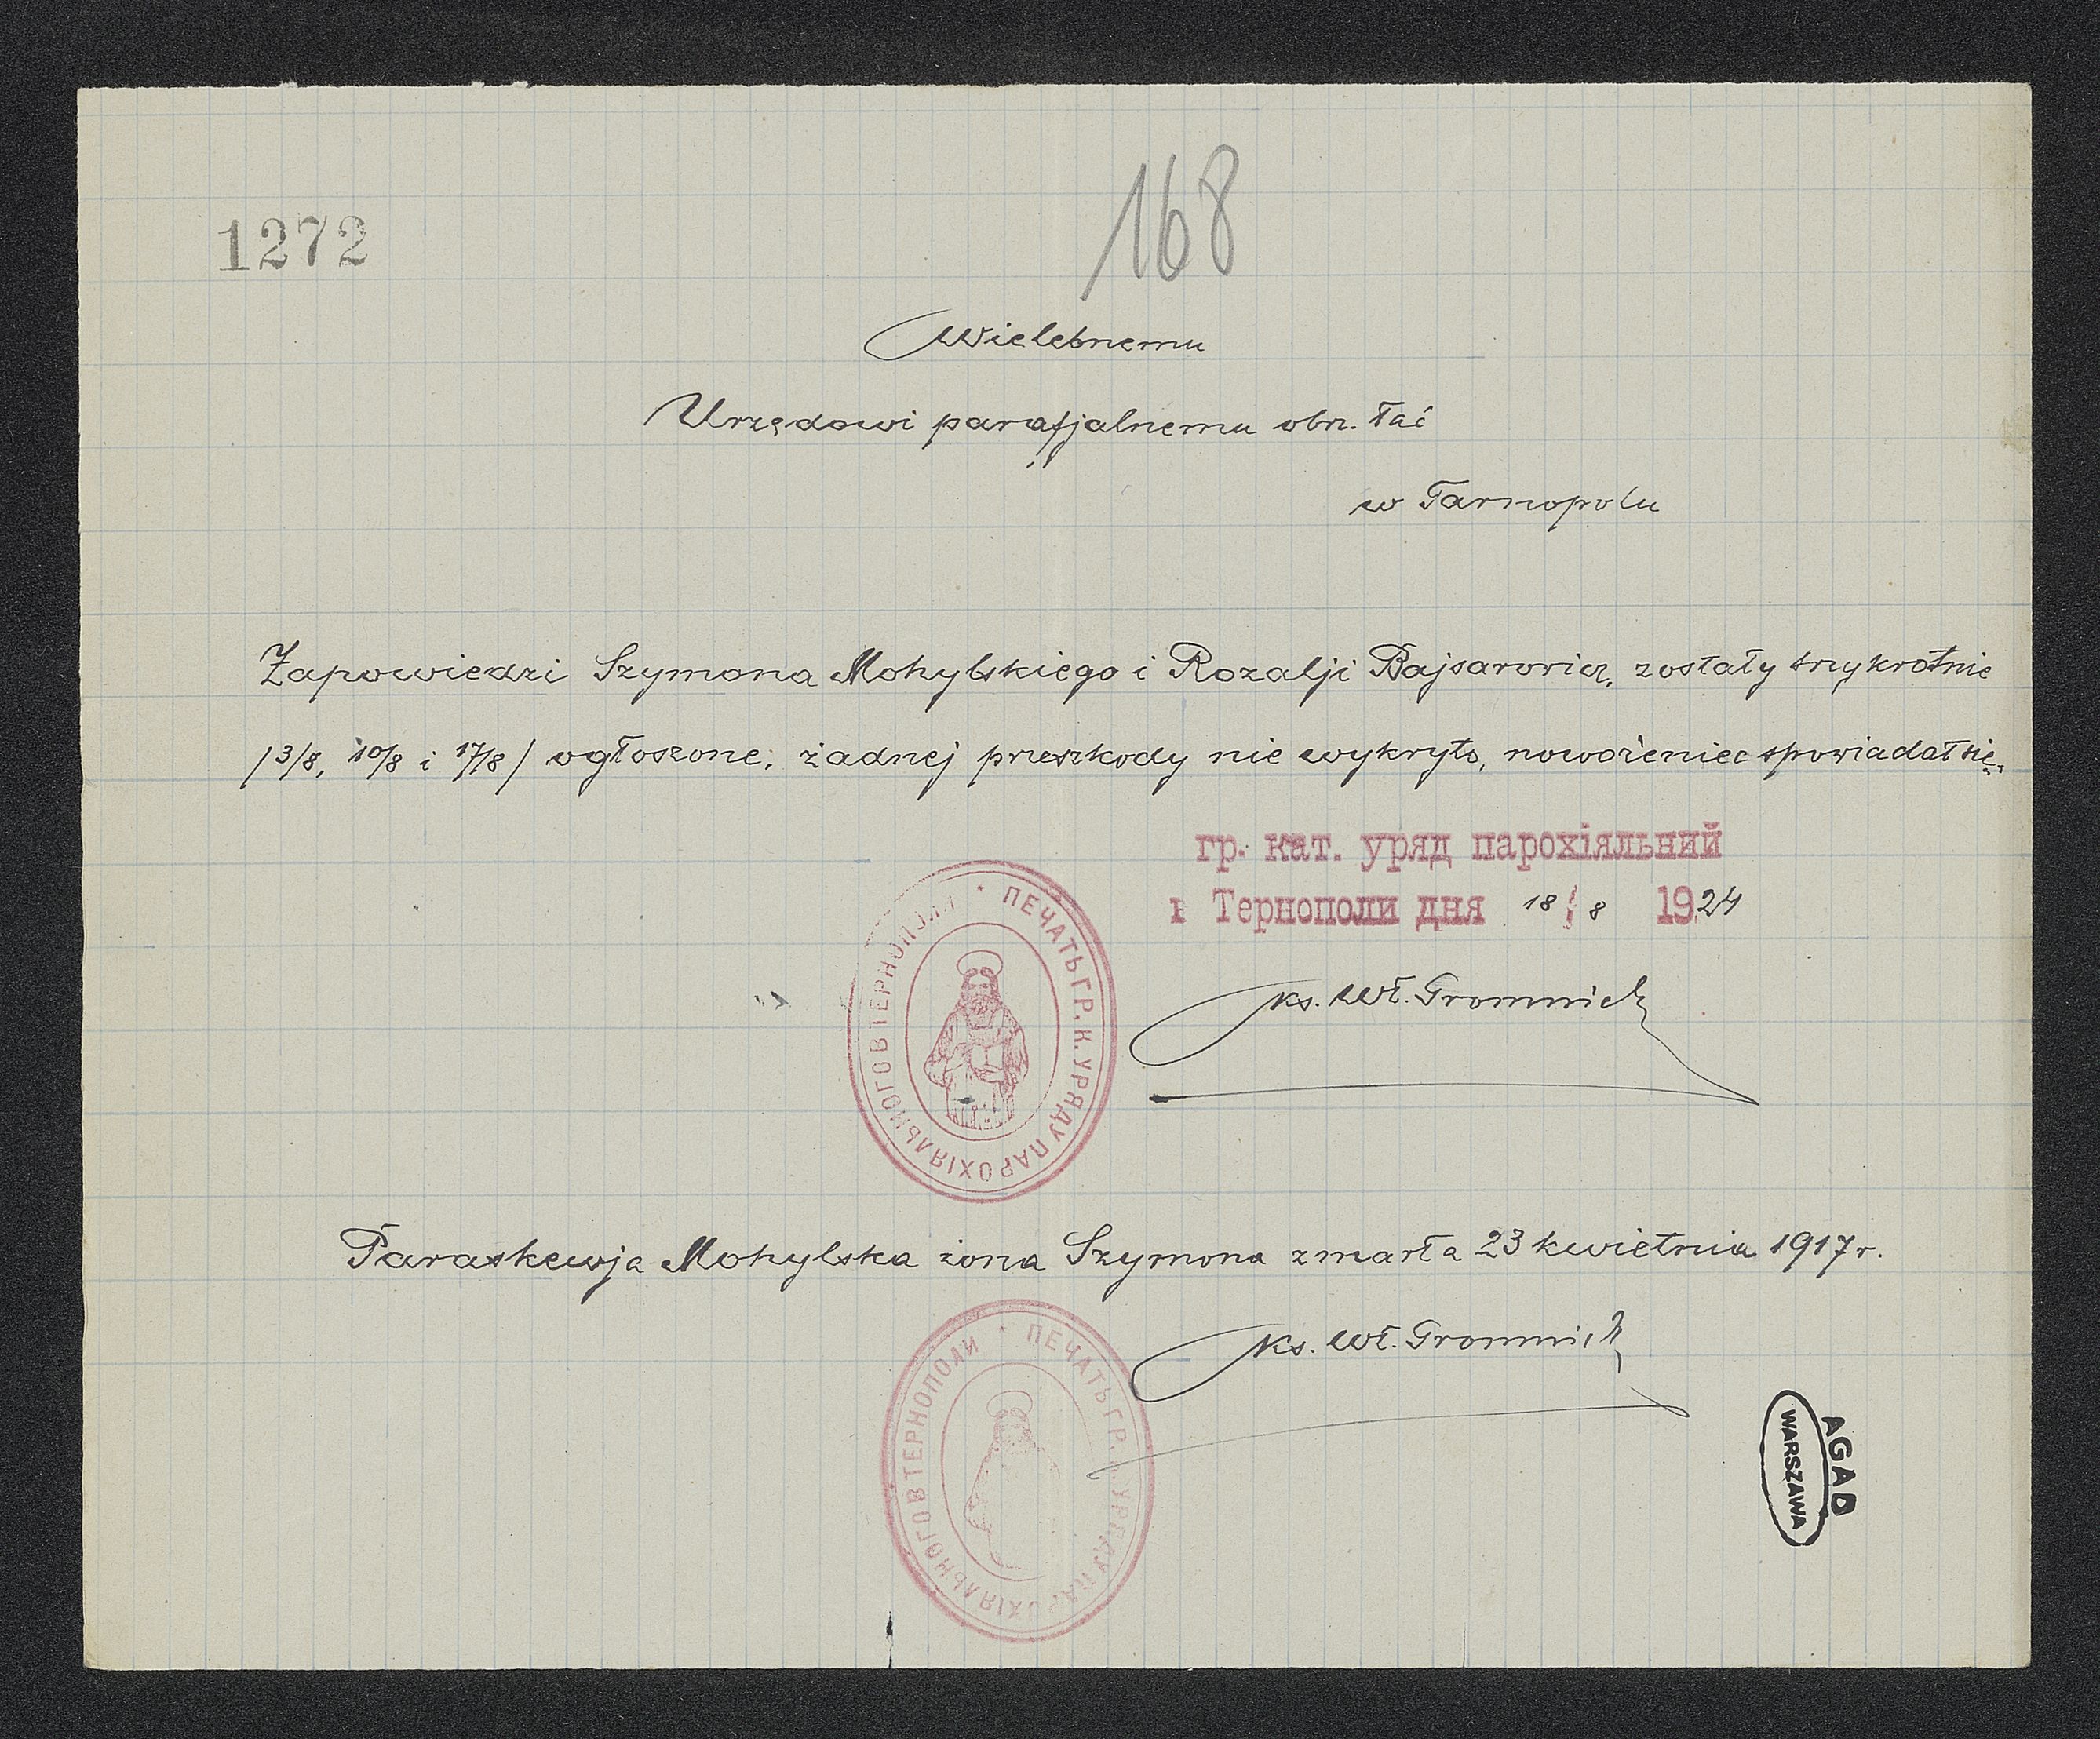 168
1272
Wielebnemu
Urzędowi parafjalnemu obrz. łać
w Tarnopolu
Zapowiedzi Szymona Mohylskiego i Rozalji Bajsarowicz, zostały trzykrotnie
/3/8, 10/8 i 17/8/ ogłoszone, żadnej przeszkody nie wykryto, nowożeniec spowiadał się.
гр. кат. уряд парохіяльний
в Тернополи дня 18/8 1924
* ПЕЧАТЬ ГР. К. УРЯДУ ПАРОХІЯЛЬНОГО В ТЕРНОПОЛИ
ks. Wł. Gromnick
Paraskewja Mohylska żona Szymona zmarła 23 kwietnia 1917 r.
ks. Wł. Gromnick
* ПЕЧАТЬ ГР. К. УРЯДУ ПАРОХІЯЛЬНОГО В ТЕРНОПОЛИ
AGAD
WARSZAWA